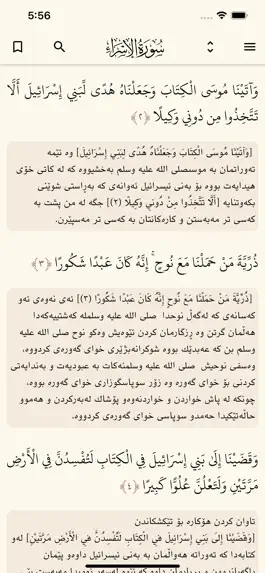 5:56
سُورَةُ الإِسْرَاءِ
وَآتَيْنَا مُوسَى الْكِتَابَ وَجَعَلْنَاهُ هُدًى لِّبَنِي إِسْرَائِيلَ أَلَّا
تَتَّخِذُوا مِن دُونِي وَكِيلًا ﴿٢﴾
[وَآتَيْنَا مُوسَى الْكِتَابَ وَجَعَلْنَاهُ هُدًى لِبَنِي إِسْرَائِيلَ] وە ئێمە
تەوراتمان بە موسى صلى الله عليه وسلم بەخشیووە کە لە کاتی خۆی
هیدایەت بووە بۆ بەنی ئیسرائیل ئەوانەی کە بەڕاستی شوێنی
بکەوتنایە [أَلَّا تَتَّخِذُوا مِنْ دُونِي وَكِيلًا (٢)] جگە لە من پشت بە
کەسی تر مەبەستن و کارەکانتان بە کەسی تر مەسپێرن.
ذُرِّيَّةَ مَنْ حَمَلْنَا مَعَ نُوحٍ ۚ إِنَّهُ كَانَ عَبْدًا شَكُورًا ﴿٣﴾
[ذُرِّيَّةَ مَنْ حَمَلْنَا مَعَ نُوحٍ إِنَّهُ كَانَ عَبْدًا شَكُورًا (٣)] ئەی نەوەی ئەو
کەسانەی کە لەگەڵ نوحدا صلى الله عليه وسلم لە کەشتییەکەدا
هەڵمان گرتن وە ڕزگارمان کردن ئێوەیش وەکو نوح صلى الله عليه
وسلم بن کە عەبدێك بووە شوکرانەبژێری خوای گەورەی کردووە،
وەسفی نوحیش صلى الله عليه وسلم ئەکات بە عبودیەت و بەندایەتی
کردنی بۆ خوای گەورە وە زۆر سوپاسگوزاری خوای گەورە بووە،
چونکە لە پاش خواردن و خواردنەوەو پۆشاك لەبەرکردن و هەموو
حاڵەتێکیدا حەمدو سوپاسی خوای گەورەی کردووە.
وَقَضَيْنَا إِلَىٰ بَنِي إِسْرَائِيلَ فِي الْكِتَابِ لَتُفْسِدُنَّ فِي الْأَرْضِ
مَرَّتَيْنِ وَلَتَعْلُنَّ عُلُوًّا كَبِيرًا ﴿٤﴾
تاوان کردن هۆکارە بۆ تێکشکاندن
[وَقَضَيْنَا إِلَى بَنِي إِسْرَائِيلَ فِي الْكِتَابِ لَتُفْسِدُنَّ فِي الْأَرْضِ مَرَّتَيْنِ] لەو
کتابەدا کە تەوراتە هەواڵمان بە بەنی ئیسرائیل داوەو پێمان